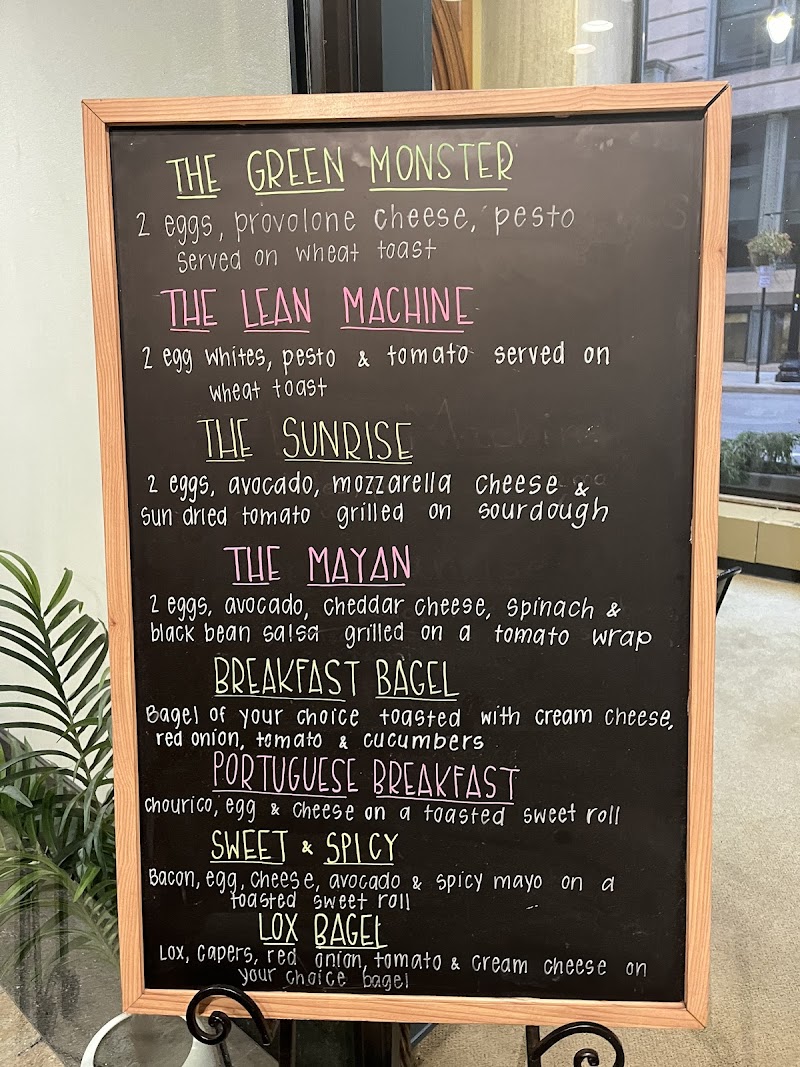 THE GREEN MONSTER
2 eggs, provolone cheese, pesto
served on wheat toast
THE LEAN MACHINE
2 egg whites, pesto & tomato served on
wheat toast
THE SUNRISE
2 eggs, avocado, mozzarella cheese &
sun dried tomato grilled on sourdough
THE MAYAN
2 eggs, avocado, cheddar cheese, spinach &
black bean salsa grilled on a tomato wrap
BREAKFAST BAGEL
Bagel of your choice toasted with cream cheese,
red onion, tomato & cucumbers
PORTUGUESE BREAKFAST
chourico, egg & cheese on a toasted sweet roll
SWEET & SPICY
Bacon, egg, cheese, avocado & spicy mayo on a
toasted sweet roll
LOX BAGEL
Lox, capers, red onion, tomato & cream cheese on
your choice bagel